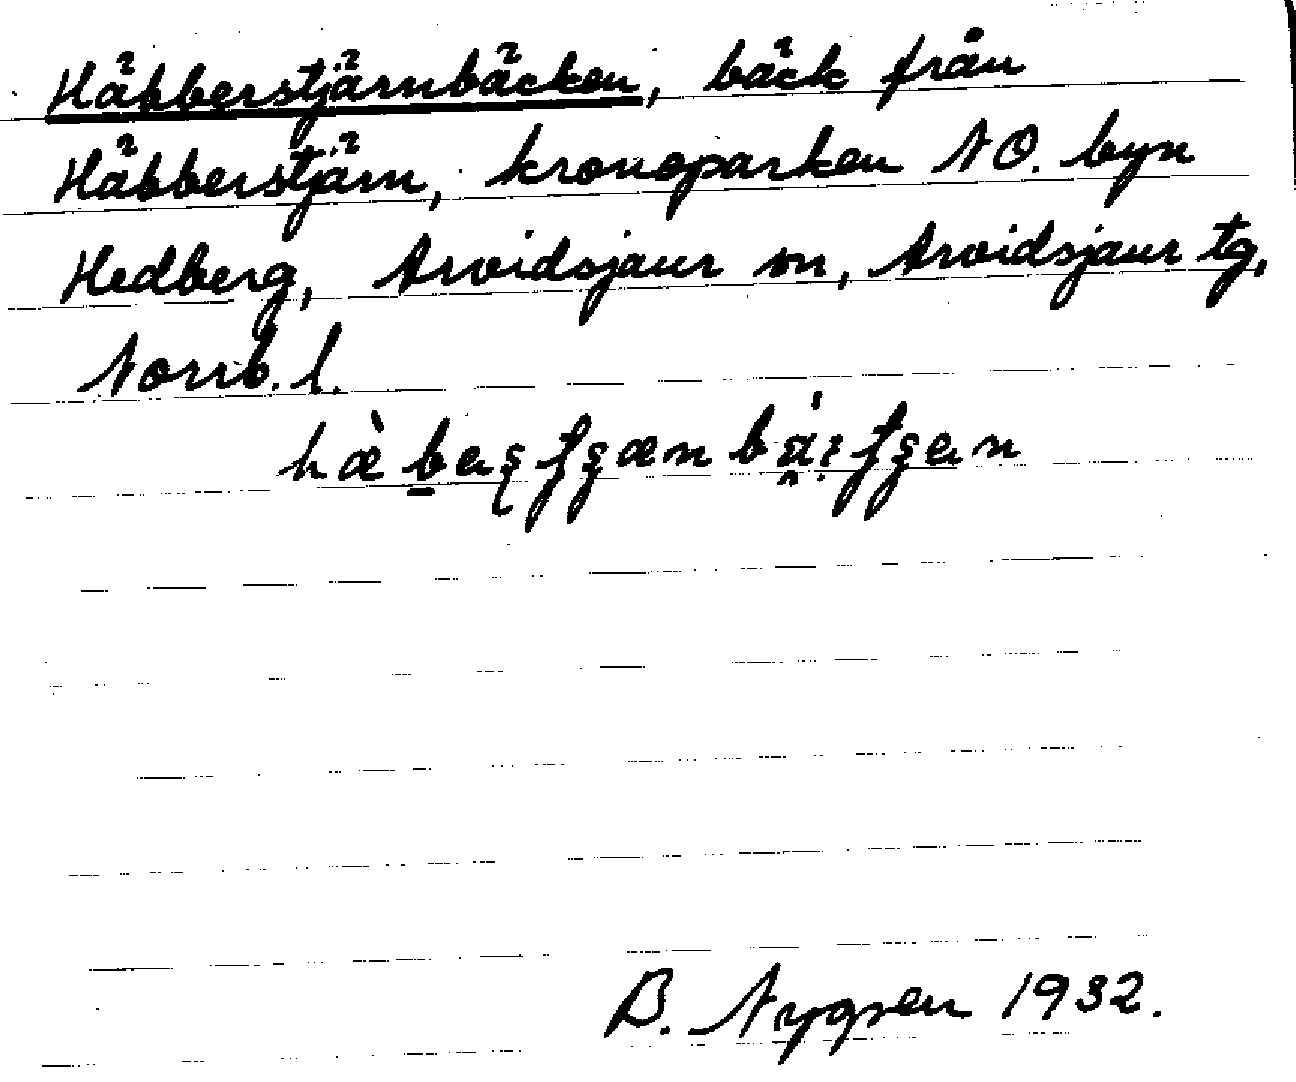 Häbberstjärnbäcken, bäck från
Häbberstjärn, kronoparken NO. byn
Hedberg, Arvidsjaur sn, Arvidsjaur tg,
Norrb. l.
B. Nygren 1932.